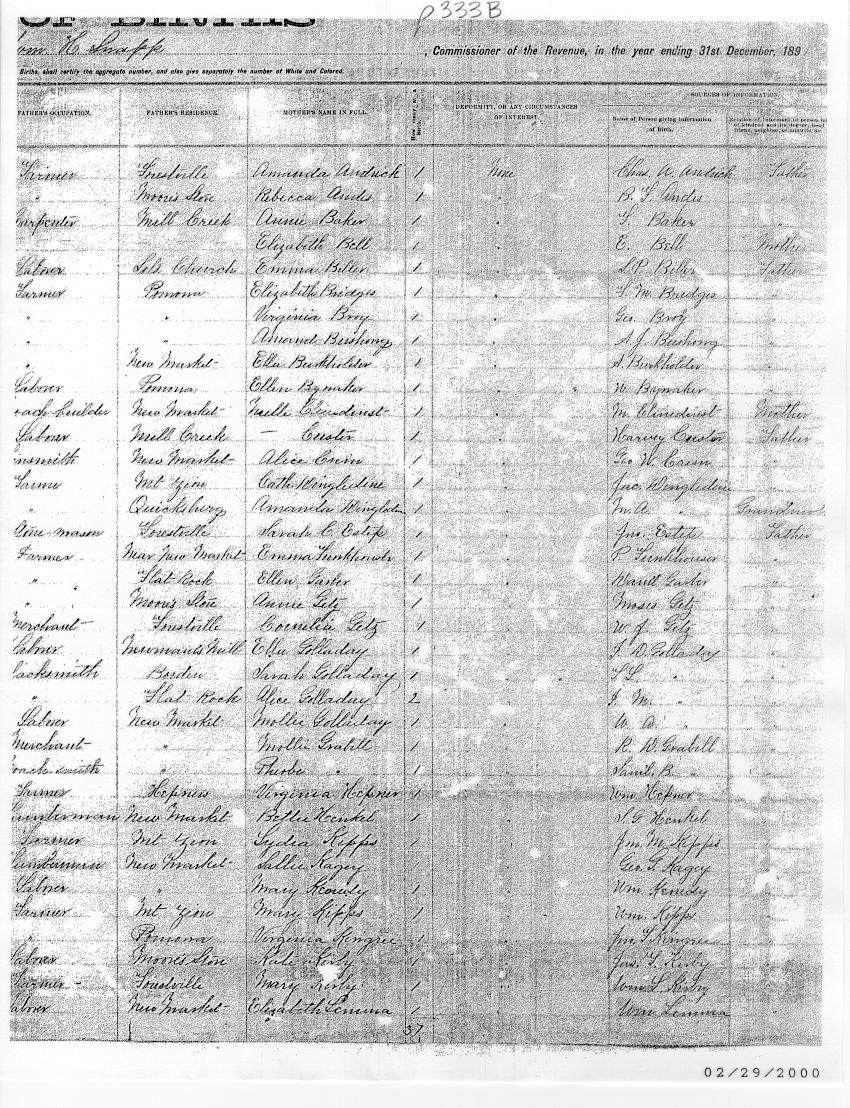 p333B
OF BIRTHS
H. Snapp, Commissioner of the Revenue, in the year ending 31st December, 189
Births, shall certify the aggregate number, and also give separately the number of White and Colored.
SOURCES OF INFORMATION.
FATHER'S OCCUPATION. FATHER'S RESIDENCE. MOTHER'S NAME IN FULL. DEFORMITY, OR ANY CIRCUMSTANCES OF INTEREST. Name of Person giving Information of Birth.
Farmer Forestville Amanda Andrick 1 None Chas. W. Andrick Father
" Moores Store Rebecca Andes 1 " B. F. Andes "
Carpenter Mill Creek Annie Baker 1 " Baker "
Elizabeth Bell 1 " E. Bell Mother
Labour Church Emma Biller 1 " S. P. Biller Father
Farmer Pomona Elizabeth Bridges 1 " S. M. Bridges "
" " Virginia Broy 1 " Geo. Broy "
" " Amand Bushong 1 " A. J. Bushong "
" New Market Ella Burkholder 1 " A. Burkholder "
Labour Pomona Ellen Bymaker 1 " W. Bymaker "
oach builder New Market Clinedinst 1 " M. Clinedinst Mother
Labour Mill Creek — Custer 1 " Harvey Custer Father
nsmith New Market Alice Crim 1 " Geo W. Crim "
Farme Mt Zion Cath Wingledine 1 " Jac. Wingledine "
" Quicksburg Amanda 1 " M. A. " Grandmo
Stone-mason Forestville Sarah C. Estep 1 " Jno. Estep Father
Farmer Near New Market Emma Funkhouser 1 " P. Funkhouser "
" Flat Rock Ellen Garber 1 " Garber "
" Moores Store Annie Getz 1 " Moses Getz "
Merchant Forestville Cornelia Getz 1 " W. J. Getz "
Labour Newmans Mill Ella Golladay 1 " D. Golladay "
lacksmith Borden Sarah Golladay 1 " "
" Flat Rock Alice Golladay 2 " M. "
Labour New Market Mollie Golladay 1 " W. "
Merchant " Mollie Grabill 1 " R. W. Grabill "
oach smith " Phoebe " 1 " Saml. B. "
Farmer Hepners Virginia Hepner 1 " Wm. Hepner "
New Market Bettie Henkel 1 " S. G. Henkel "
Farmer Mt Zion Lydia Kipps 1 " Jno. M. Kipps "
New Market Sallie Kagey 1 " Geo. Kagey "
Labour " Mary Kenedy 1 " Wm. Kenedy "
Farmer Mt Zion Mary Kipps 1 " Wm. Kipps "
" Pomona Virginia Kingree 1 " Kingree "
Labour Moores Store Kate Kirby 1 " Jas. Kirby "
Farmer Forestville Mary Kirby 1 " Wm. Kirby "
abour New Market Elizabeth Lemma 1 " Wm Lemma "
37
02/29/2000